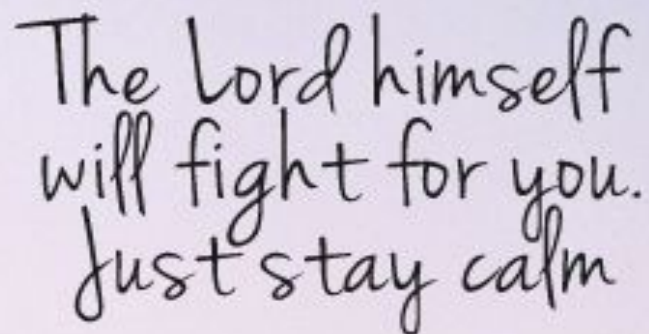 The Lord himself
will fight for you.
Just stay calm